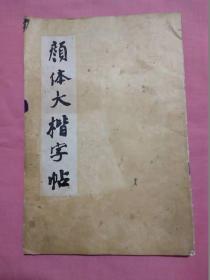 顏体大楷字帖